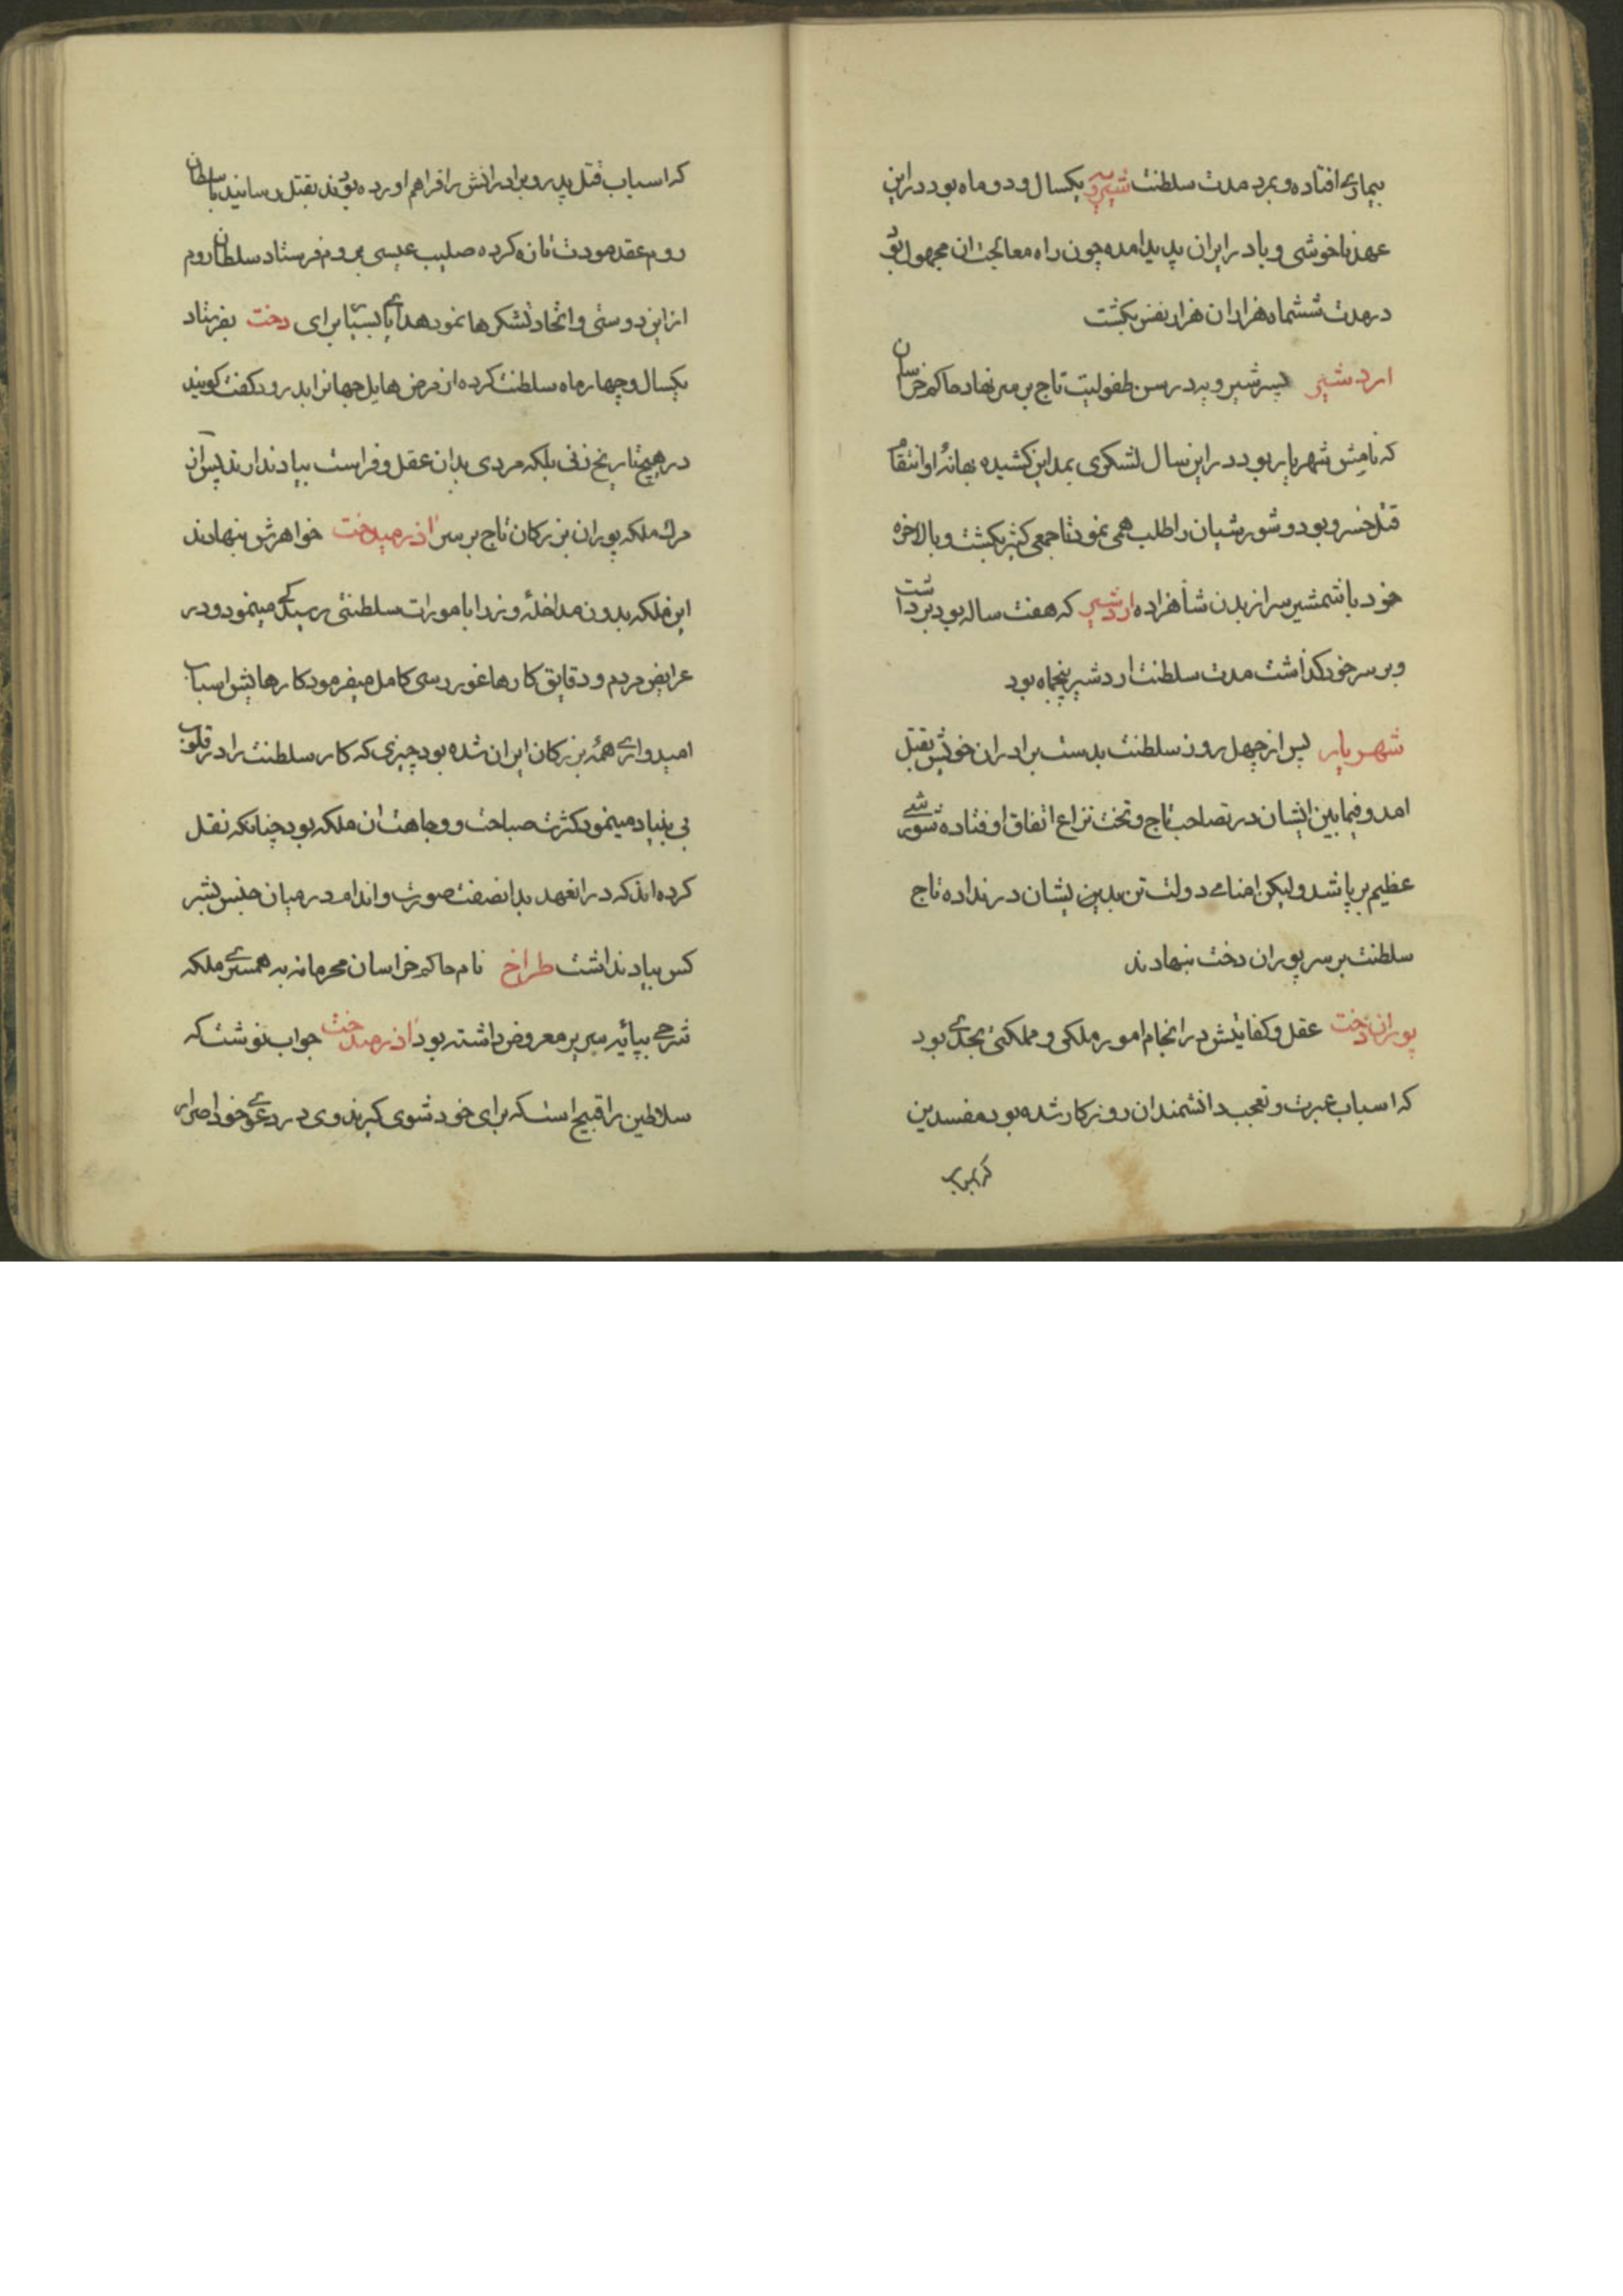 بیماریه افتاده و بمرد مدت سلطنت شیرویه یکسال و دو ماه بود در این
عهد ناخوشی وبا در ایران پدید امده چون راه معالجت ان مجهول بود
در مدت ششماه هزاران هزار نفس بکشت
اردشیر پسر شیرویه در سن طفولیت تاج بر سر نهاد حاکم خراسان
که نامش شهریار بود در این سال لشکری بمداین کشیده بهانهٔ او انتقام
قتل خسرو بود و شورشیان را طلب همی نمود تا جمعی کثیر بکشت و بالاخره
خود با شمشیر سر از بدن شاهزاده اردشیر که هفت ساله بود برداشت
و بر سر خود گذاشت مدت سلطنت اردشیر پنجماه بود
شهریار پس از چهل روز سلطنت بدست برادران خویش بقتل
امد و فیما بین ایشان در تصاحب تاج و تخت نزاع اتفاق اوفتاده شورشے
عظیم برپا شد ولیکن امنای دولت تن بدین ایشان در نداده تاج
سلطنت بر سر پوران دخت بنهادند
پوران دخت عقل و کفایتش در انجام امور ملکی و مملکتی بحدی بود
که اسباب عبرت و تعجب دانشمندان روزکار شده بود مفسدین
که اسباب قتل پدر و برادرانش را فراهم اورده بودند بقتل رسانید با سلطان
روم عقد مودت تازه کرده صلیب عیسی بروم فرستاد سلطان روم
از این دوستی و اتحاد تشکرها نمود هدایای بسیار برای دخت بفرستاد
یکسال و چهار ماه سلطنت کرده از مرض هایل جهانرا بدرود کفت کویند
در هیچ تاریخ زنی بلکه مردی بدان عقل و فراست بیاد ندارند پس از
مرگ ملکه پوران بزرکان تاج بر سر آذرمیدخت خواهرش بنهادند
این ملکه بدون مداخلهٔ وزرا بامورات سلطنتی رسیدگی مینمود و در
عرایض مردم و دقایق کارها غور رسی کامل میفرمود کارهایش اسباب
امیدوارے همهٔ بزرکان ایران شده بود چیزی که کار سلطنت را در قلوب
بی بنیاد مینمود کثرت صباحت و وجاهت ان ملکه بود چنانکه نقل
کرده اند که در انعهد بدانصفت صورت و اندام در میان جنس بشر
کس بیاد نداشت طراخ نام حاکم خراسان محرمانه به همسرے ملکه
شرحے بپایهٔ سریر معروض داشته بود آذرمیدخت جواب نوشت که
سلاطین را قبیح است که برای خود شوی کیرند وی در دعوی خود اصرار